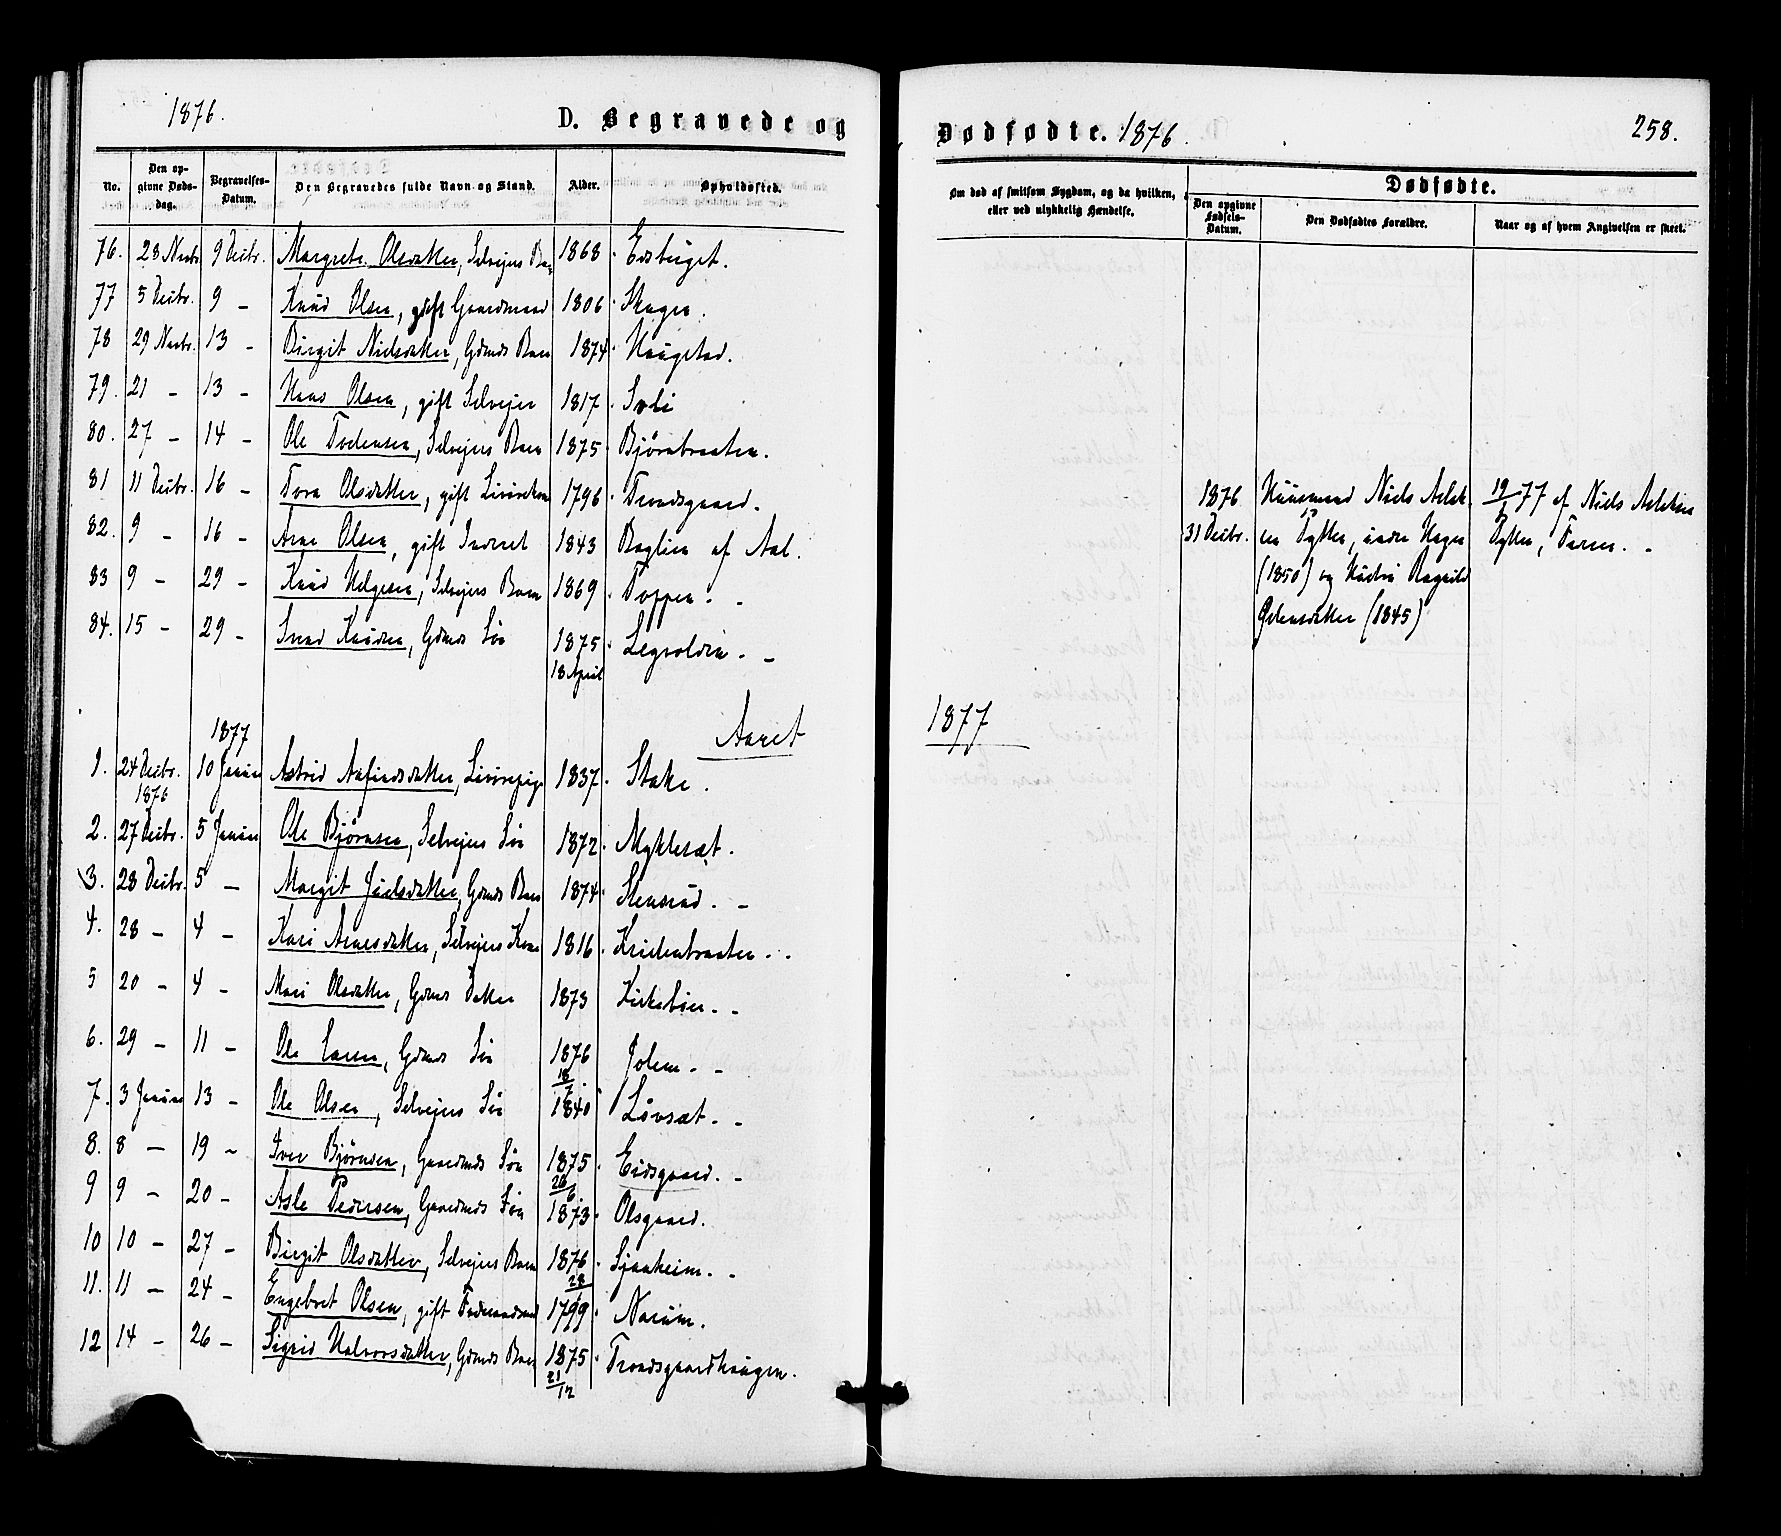 1876.
D. Begravede og
No.
Den op-
givne Døds-
dag.
Begravelses-
Datum.
Den Begravedes fulde Navn og Stand.
Alder.
Opholdssted.
76. 28 Novbr 9 Decbr. Margrete Olsdatter, Selvejers Barn 1868.
77 5 Decbr. 9 - Knud Olsen, gift Gaardmand 1806. Skagen.
78 29 Novbr. 13 - Birgit Nielsdatter, Gdmds Barn 1874. Haugstad.
79. 21 - 13 - Hans Olsen, gift Selvejer 1817.
80. 27 - 14 - Ole Torstensen, Selvejers Barn 1875. Bjørnbraaten.
81 11 Decbr. 16 - Tora Olsdatter, gift 1796. Trondsgaard.
82. 9 - 16 - Arne Olsen, gift Inderst 1843 Baglien af Aal.
83 9 - 29 - Knud Helgesen, Selvejers Barn 1869. Toppen. -
84. 15 - 29 - Svend Knudsen, Gdmds Søn 1875.
18 April
1877
Aaret
1. 24 Decbr. 10 Januar Astrid Arfindsdatter, 1837. Stake.
1876
2. 27 Decbr. 5 Januar Ole Bjørnsen, Selvejers Søn 1872. Myklesæt.
3. 28 Decbr. 5 - Margit Juelsdatter, Gdmds Barn 1874. Stensrud. -
4. 28 - 4 - Kari Arnesdatter, Selvejers Kone 1816.
5 20 - 4 - Mari Olsdatter, Gdmds Datter 1873 Kirkebøen. -
6. 29 - 11 - Ole Larsen, Gdmds Søn 1876
18
7
Jolem. -
7. 3 Januar 13 - Ole Olsen, Selvejers Søn 1840 Løvsæt. -
8. 8 - 19 - Iver Bjørnsen, Gaardmds Søn 1875.
26
6
Eidsgaard. -
9 9 - 20 - Asle Pedersen, Gaardmds Søn 1873. Olsgaard.
10 10 - 27 - Birgit Olsdatter, Selvejers Barn 1876.
28
Sjaaheim. -
11. 11 - 24 - Engebret Olsen, gift 1799. Narum.
12 14 - 26 - Sigrid Halvorsdatter, Gdmds Barn 1875.
21
12
Trondsgaardhaugen.
Dødfødte. 1876.
258.
Om død af smitsom Sygdom, og da hvilken,
eller ved ulykkelig Hændelse.
Dødfødte.
Den opgivne
Fødsels-
Datum.
Den Dødfødtes Forældre.
Naar og af hvem Angivelsen er skeet.
1876 Huusmand Niels Aslak- 19/1 77 af Niels Aslaksen
31 Decbr. sen Pytten, under Hagen Pytten, Faren. -
(1850) og Hustru Ragnild
(1845)
1877